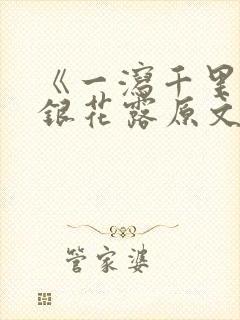 《一瀉千里
銀花露原文
管家婆